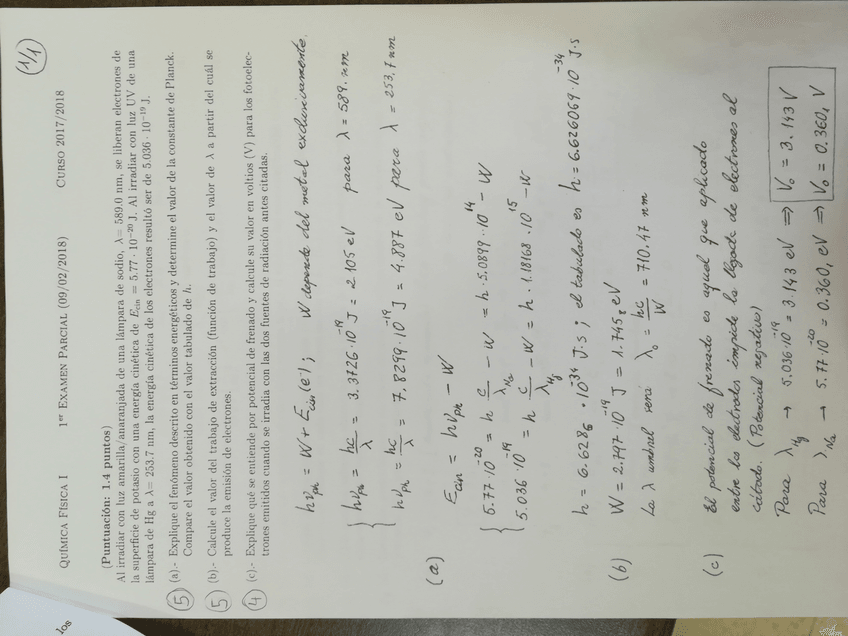 (1/1)
QUÍMICA FÍSICA I 1er EXAMEN PARCIAL (09/02/2018) CURSO 2017/2018
(Puntuación: 1.4 puntos)
Al irradiar con luz amarilla/anaranjada de una lámpara de sodio, λ= 589.0 nm, se liberan electrones de
la superficie de potasio con una energía cinética de Ecin = 5.77 · 10⁻²⁰ J. Al irradiar con luz UV de una
lámpara de Hg a λ= 253.7 nm, la energía cinética de los electrones resultó ser de 5.036 · 10⁻¹⁹ J.
5 (a).- Explique el fenómeno descrito en términos energéticos y determine el valor de la constante de Planck.
Compare el valor obtenido con el valor tabulado de h.
5 (b).- Calcule el valor del trabajo de extracción (función de trabajo) y el valor de λ a partir del cuál se
produce la emisión de electrones.
4 (c).- Explique qué se entiende por potencial de frenado y calcule su valor en voltios (V) para los fotoelec-
trones emitidos cuando se irradia con las dos fuentes de radiación antes citadas.
hν_ph = W + Ecin(e⁻); W depende del metal exclusivamente.
hν_ph = hc/λ = 3.3726·10⁻¹⁹ J = 2.105 eV para λ = 589. nm
hν_ph = hc/λ = 7.8299·10⁻¹⁹ J = 4.887 eV para λ = 253,7 nm
(a) Ecin = hν_ph − W
5.77·10⁻²⁰ = h c/λ_Na − W = h·5.0899·10¹⁴ − W
5.036·10⁻¹⁹ = h c/λ_Hg − W = h·1.18168·10¹⁵ − W
h = 6.6286·10⁻³⁴ J·s; el tabulado es h = 6.626069·10⁻³⁴ J·s
(b) W = 2.797·10⁻¹⁹ J = 1.745₈ eV
La λ umbral será λ₀ = hc/W = 710.47 nm
(c) El potencial de frenado es aquel que aplicado
entre los electrodos impide la llegada de electrones al
cátodo. (Potencial negativo)
Para λ_Hg → 5.036·10⁻¹⁹ = 3.143 eV ⇒ V₀ = 3.143 V
Para λ_Na → 5.77·10⁻²⁰ = 0.360₁ eV ⇒ V₀ = 0.360₁ V
los